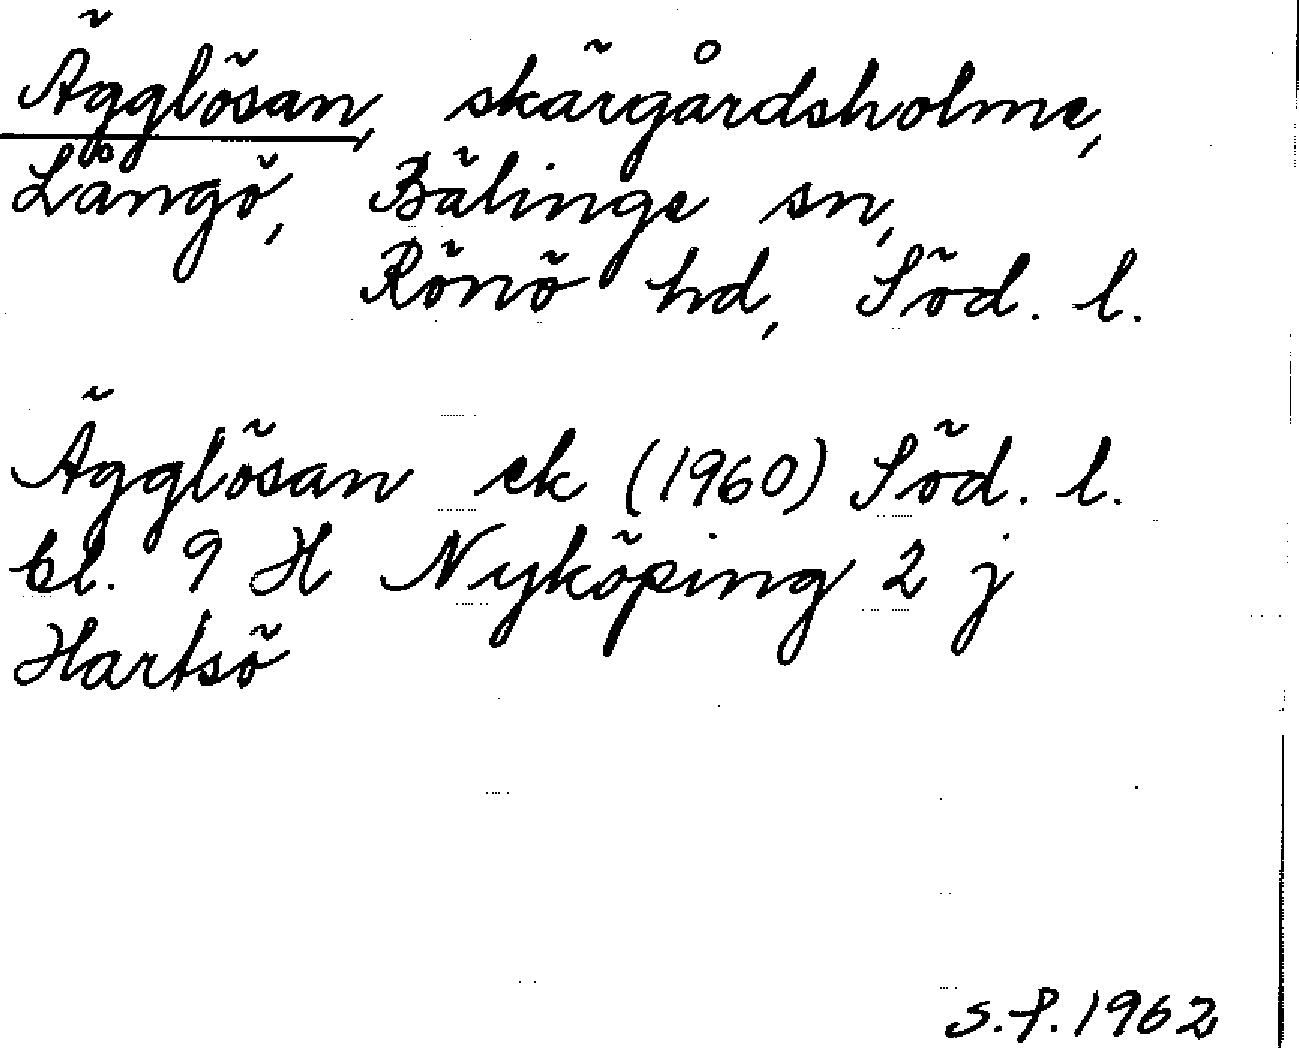 Ägglösan, skärgårdsholme,
Långö, Bälinge sn,
Rönö hd, Söd. l.
Ägglösan ek (1960) Söd. l.
bl. 9 H Nyköping 2 j
Hartsö
S.P. 1962